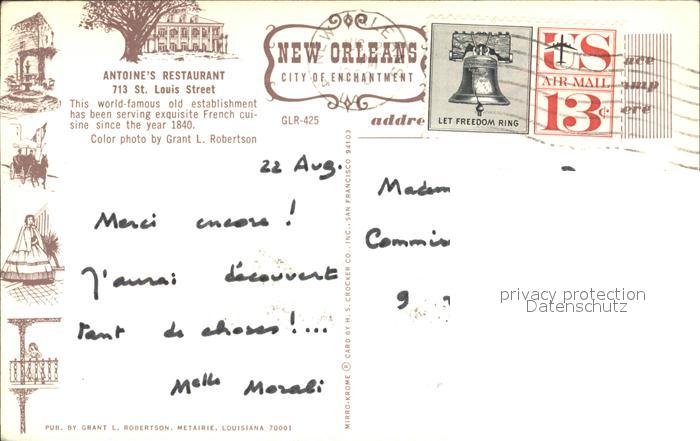 ANTOINE'S RESTAURANT
713 St. Louis Street
This world-famous old establishment
has been serving exquisite French cui-
sine since the year 1840.
Color photo by Grant L. Robertson
NEW ORLEANS
CITY OF ENCHANTMENT
GLR-425
addre
LET FREEDOM RING
US
AIR MAIL
13c
ace
mp
ere
22 Aug.
Merci encore !
J'aurai découvert
tant de choses !...
Melle Morali
Madem
Commis
9
privacy protection
Datenschutz
MIRRO-KROME ® CARD BY H. S. CROCKER CO., INC., SAN FRANCISCO 94103
PUB. BY GRANT L. ROBERTSON, METAIRIE, LOUISIANA 70001